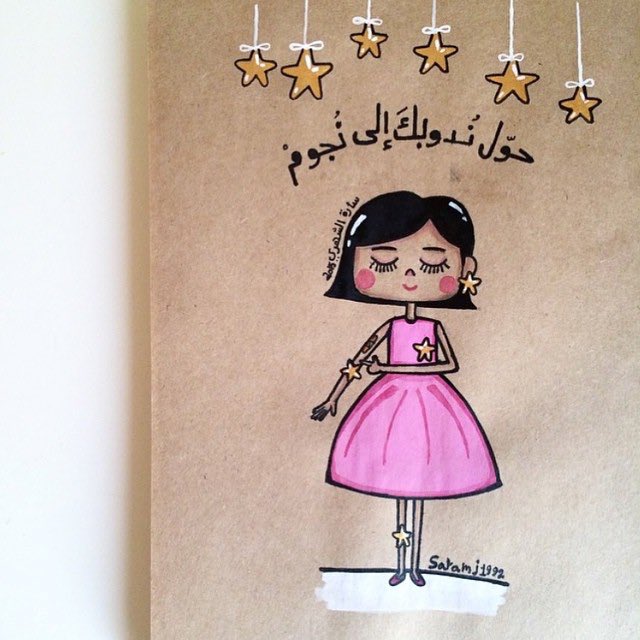 حوّل نُدوبكَ إلى نُجومْ
سارة الشهري
Saramj1992